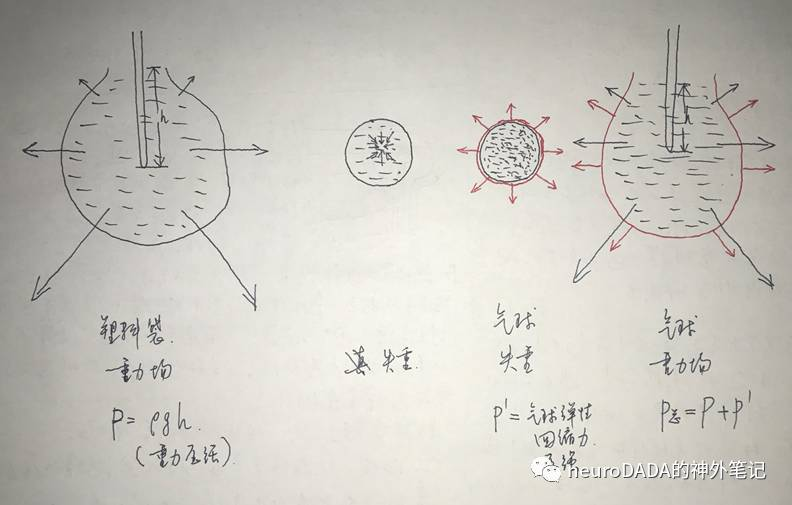 h
h
塑料袋.
重力场
P = ρgh.
(重力压强).
真失重.
气球
失重
P' = 气球弹性
回缩力
压强
气球
重力场
P总 = P + P'
neuroDADA的神外笔记